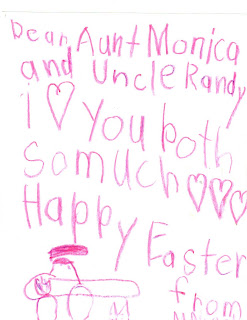 Dear Aunt Monica
and Uncle Randy
i ♡ You both
so much ♡♡♡
Happy Easter
from